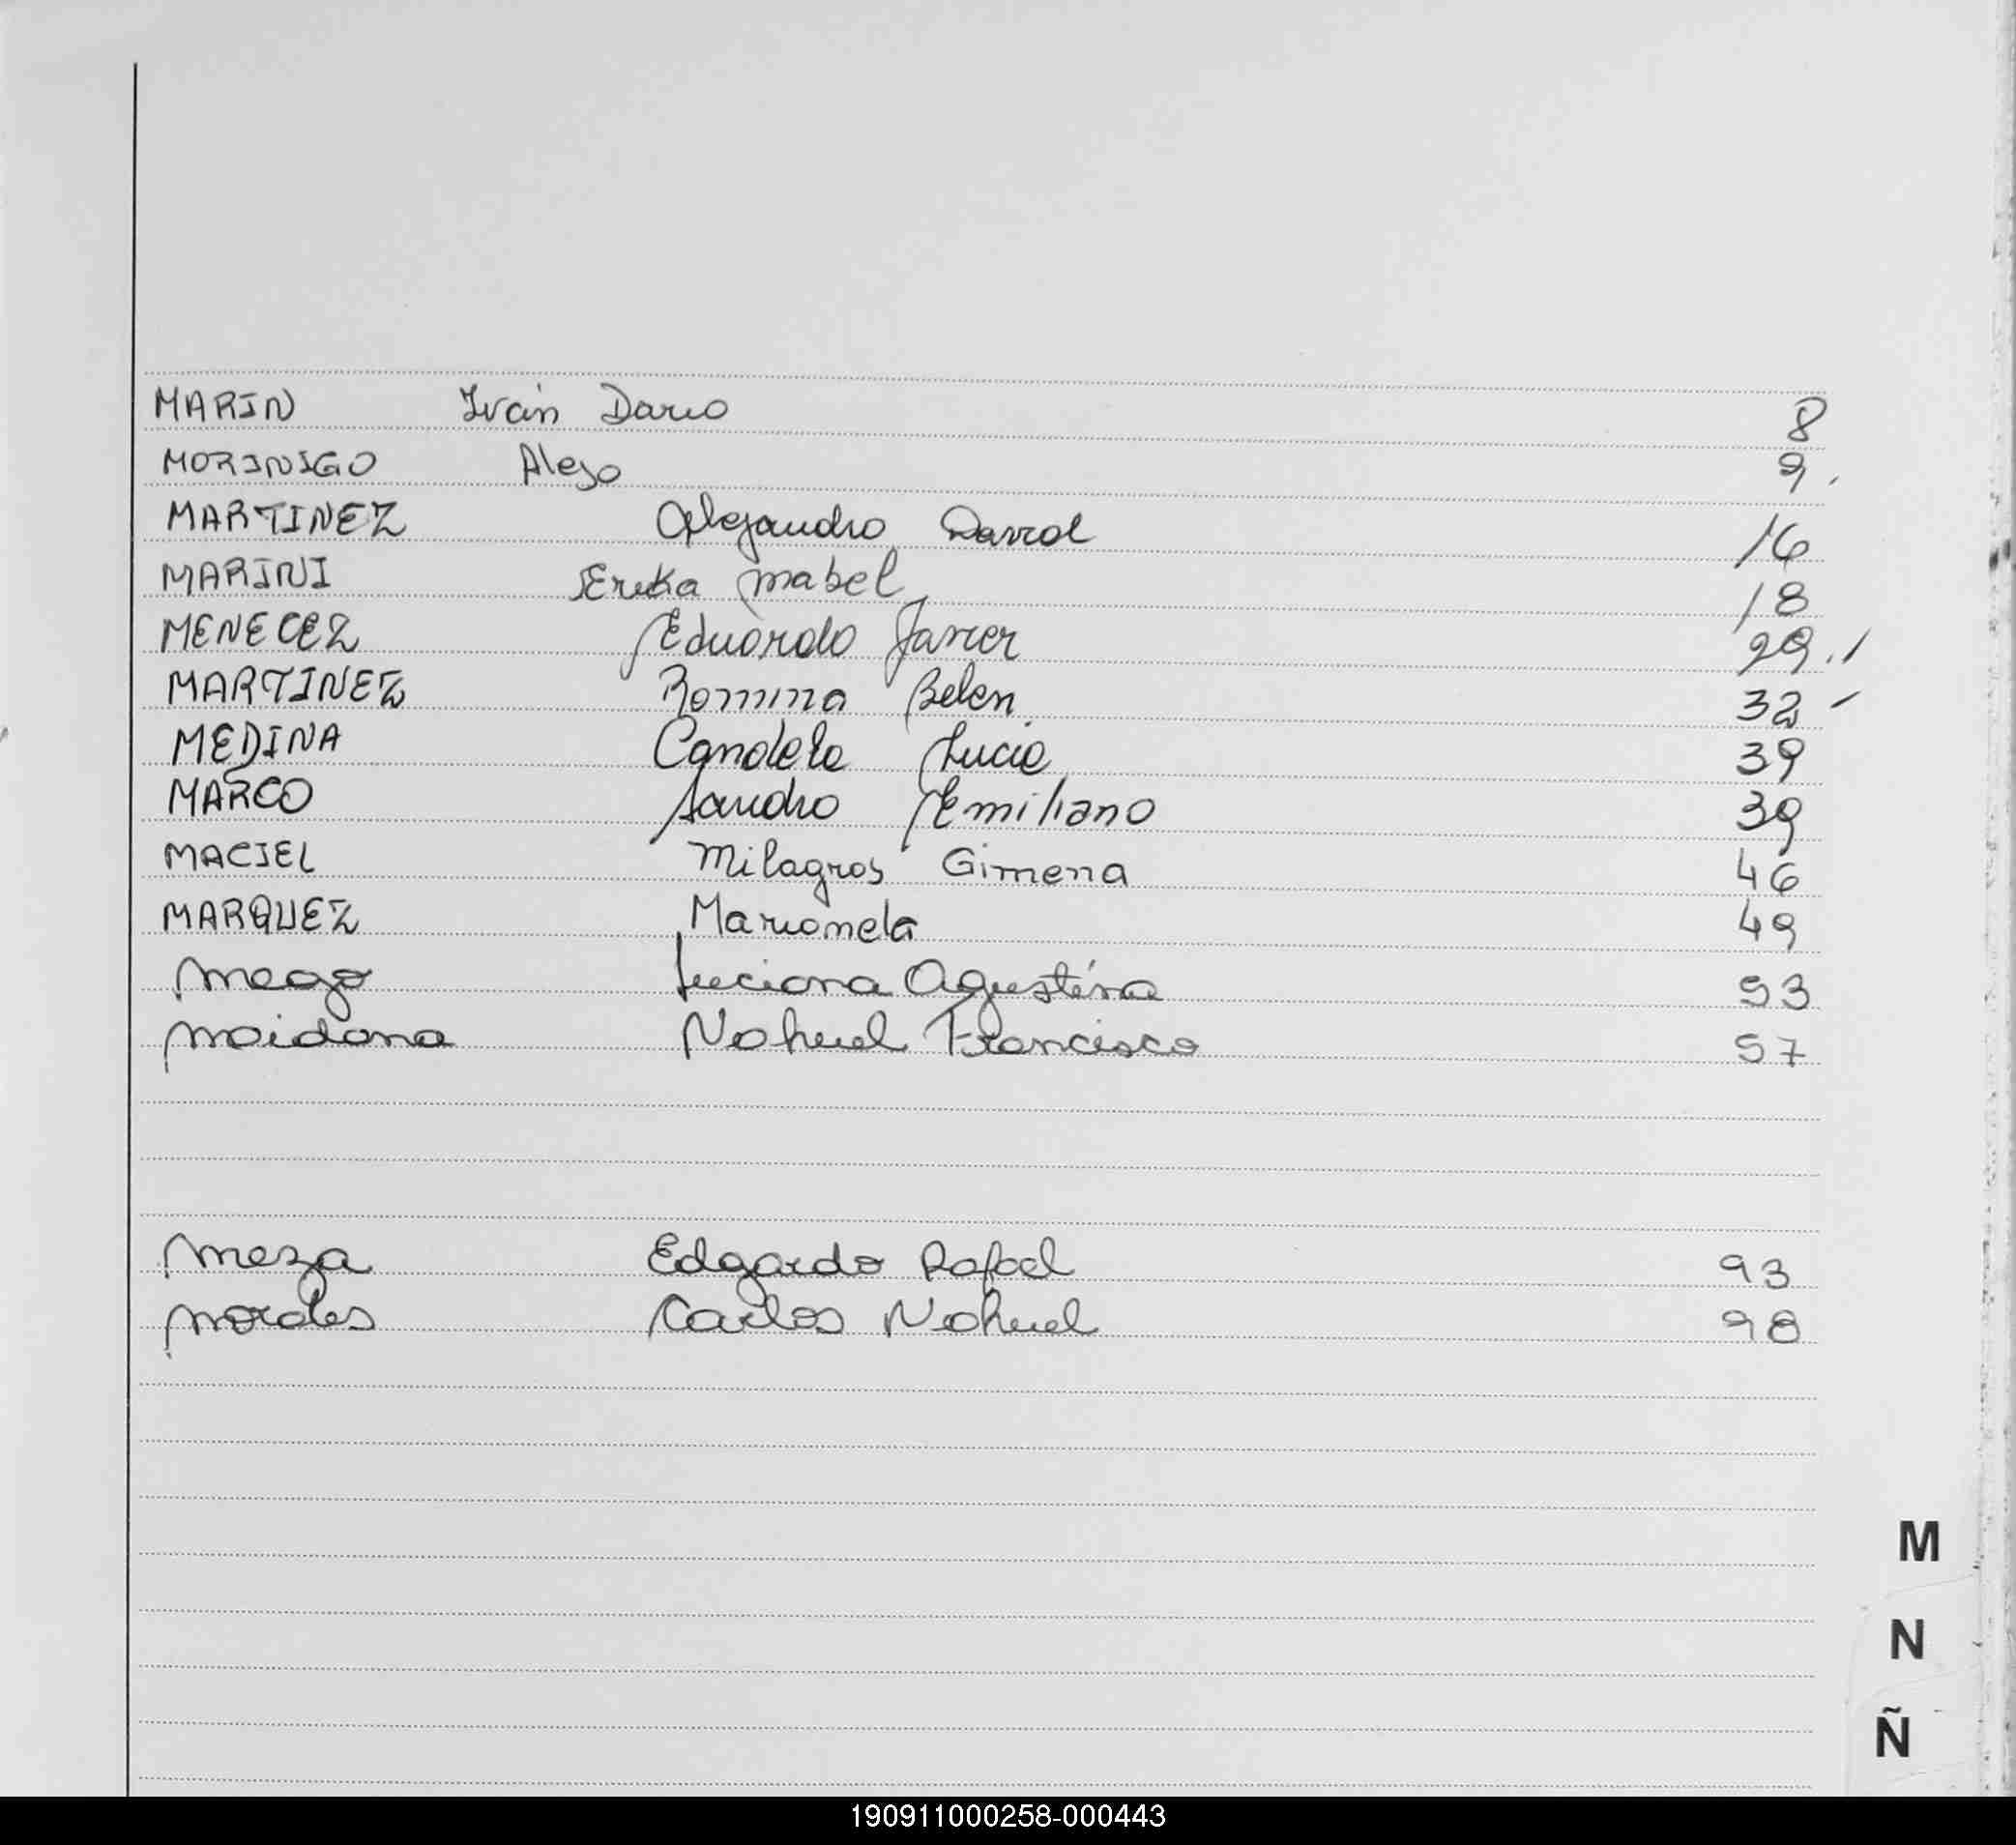 MARIN Iván Dario 8
MORINIGO Alejo 9
MARTINEZ Alejandro David 16
MARINI Erika Mabel 18
MENECEZ Eduardo Javier 29
MARTINEZ Romina Belen 32
MEDINA Candela Lucia 39
MARCO Sandro Emiliano 39
MACIEL Milagros Gimena 46
MARQUEZ Marianela 49
Luciana Agustina 53
Maidana Nahuel Francisco 57
Meza Edgardo Rafael 93
Morales Carlos Nahuel 98
M
N
Ñ
190911000258-000443